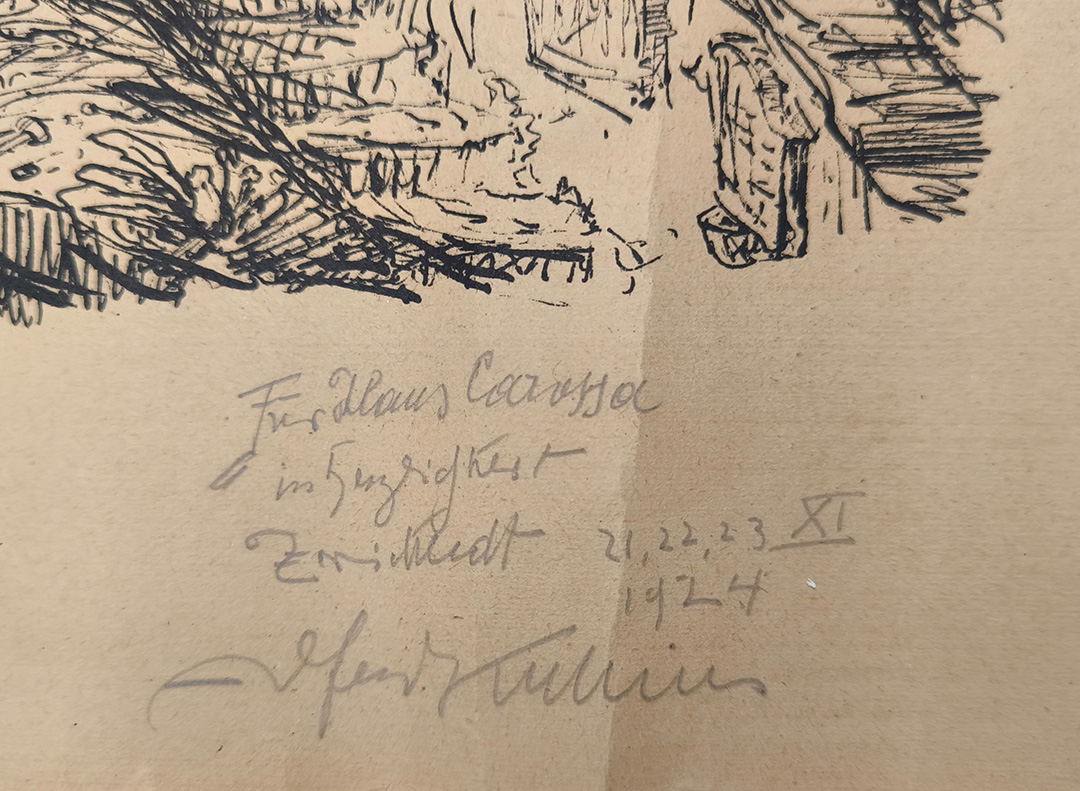 Für Hans Carossa
in Herzligkeit
Zwickledt 21, 22, 23 XI
1924
Alfred Kubin